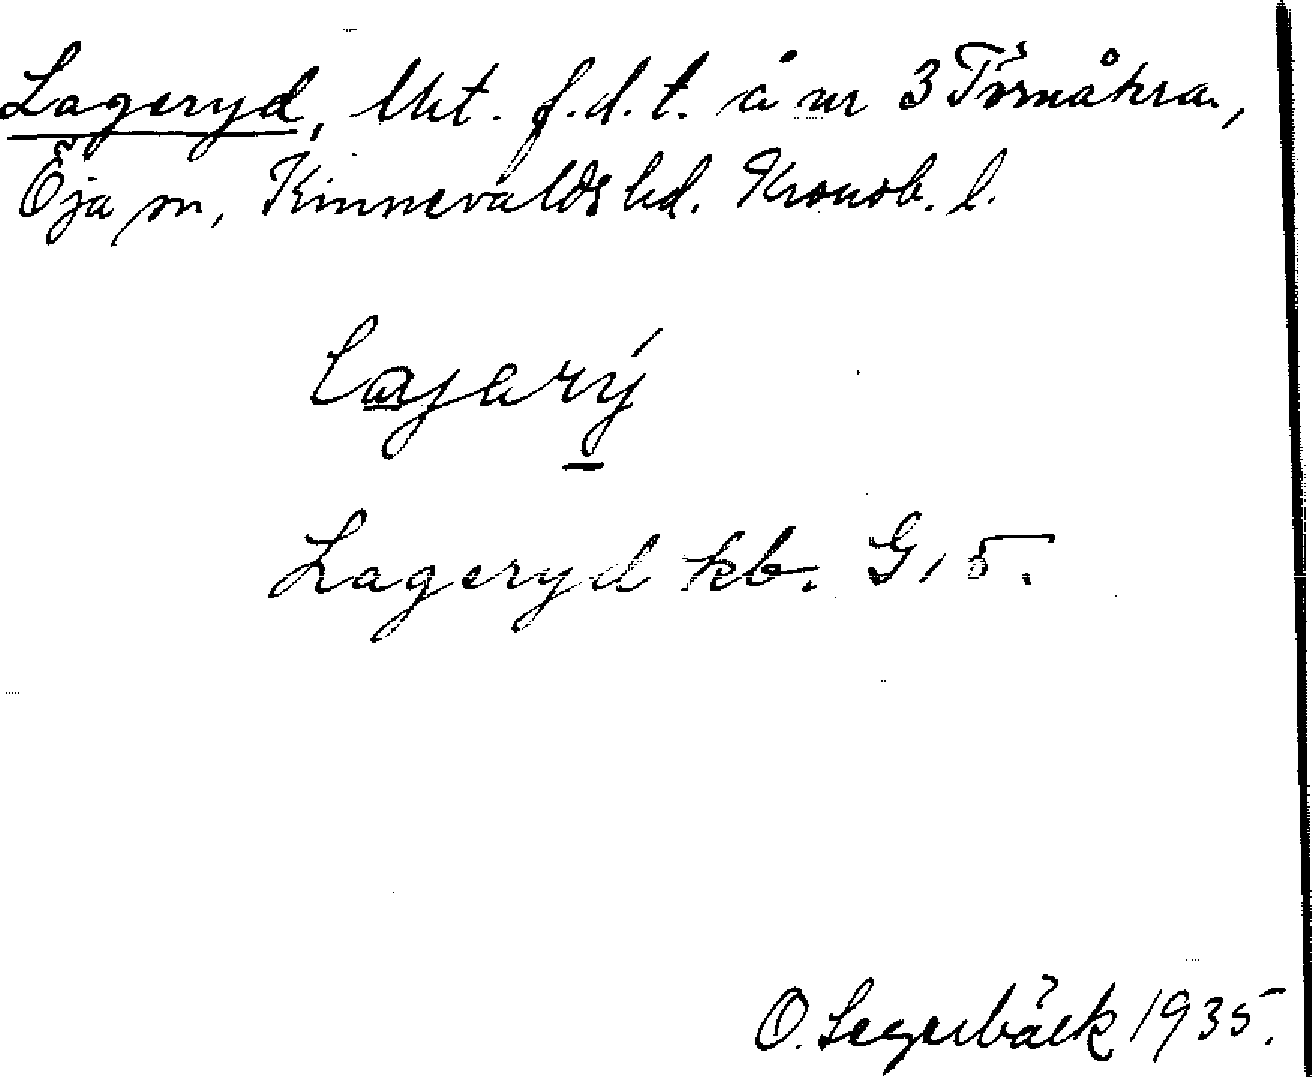 Lageryd, lht. f.d.t. å nr 3 Törnåkra,
Öja sn, Kinnevalds hd. Kronob. l.
lagarý
Lageryd kb. G, 5.
O. Segerbäck 1935.